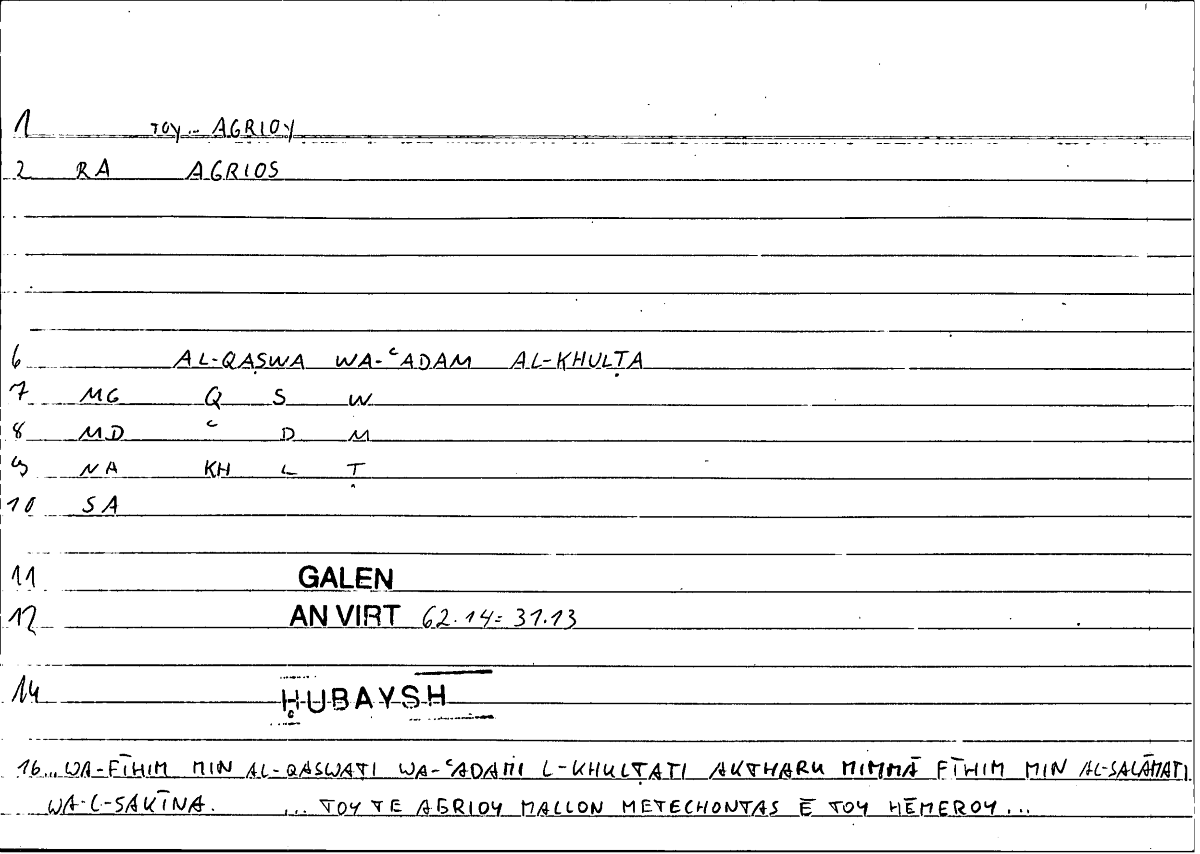 1 TOY... AGRIOY
2 RA AGRIOS
6 AL-QAṢWA WA-ᶜADAM AL-KHULṬA
7 MG Q S W
8 MD ᶜ D M
9 NA KH L Ṭ
10 SA
11 GALEN
12 AN VIRT 62.14= 31.13
14 ḤUBAYSH
16... WA-FĪHIM MIN AL-QASWATI WA-ᶜADAMI L-KHULṬATI AKTHARU MIMMĀ FĪHIM MIN AL-SALĀMATI
WA-L-SAKĪNA. ... TOY TE AGRIOY MALLON METECHONTAS Ē TOY HĒMEROY...